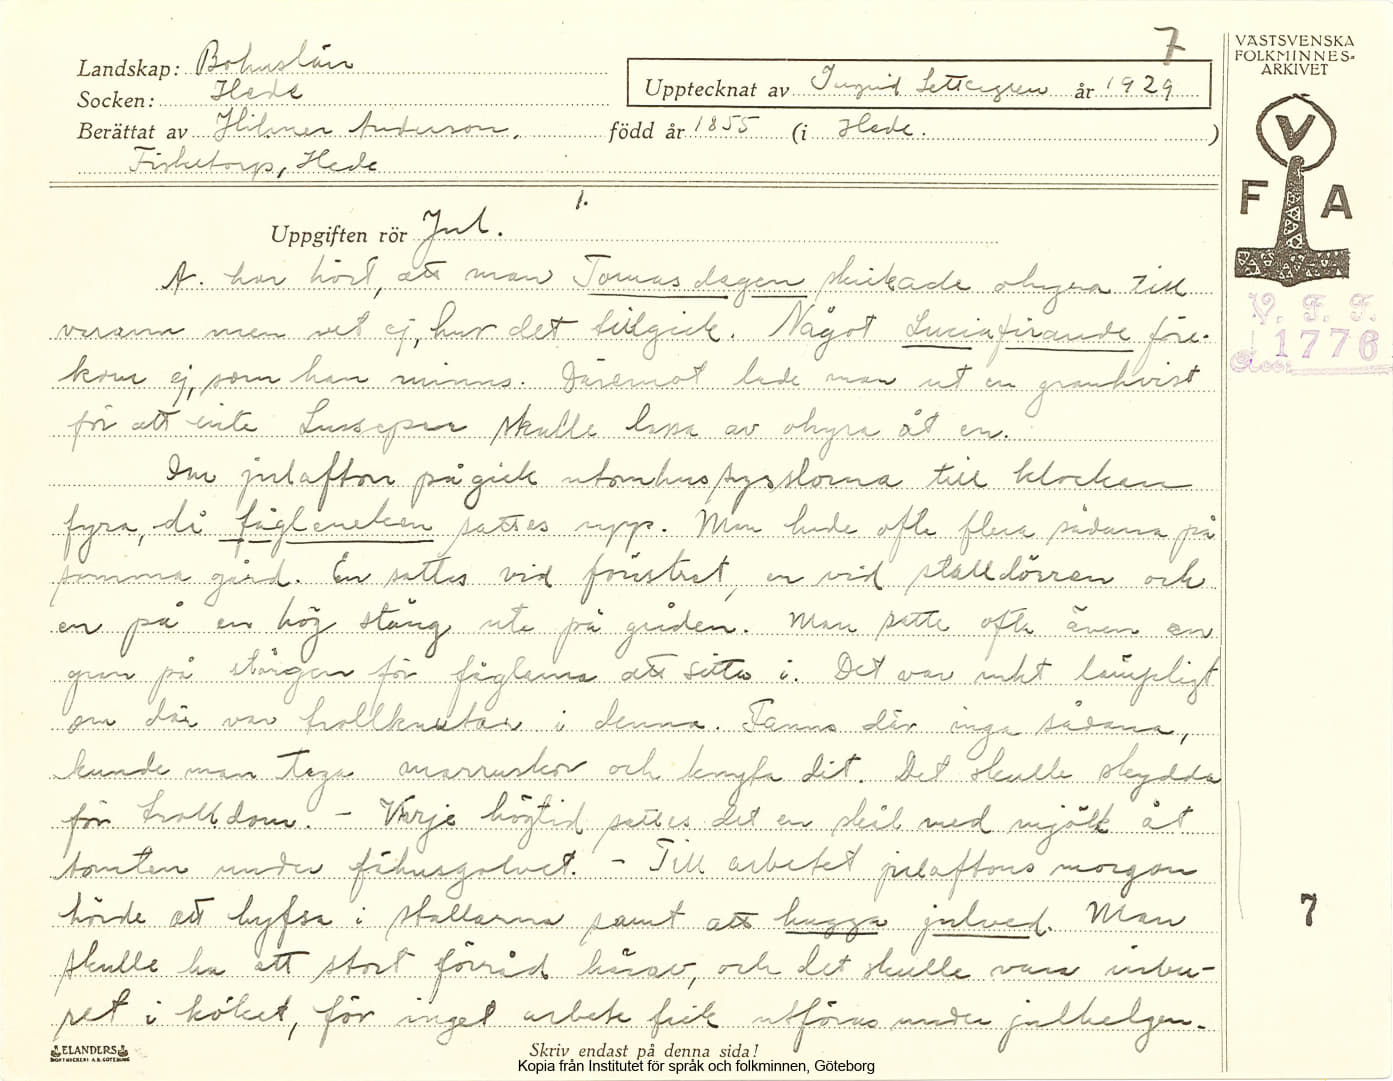 7
Landskap: Bohuslän
Socken: Hede
Upptecknat av Ingrid Settergren år 1929
Berättat av Hilmer Anderson. född år 1855 (i Hede. )
Fisketorp, Hede
1.
Uppgiften rör Jul.
A. har hört, att man Tomasdagen skickade ohyra till
varann men vet ej, hur det tillgick. Något Luciafirande före-
kom ej, som han minns. Däremot lade man ut en grankvist
för att inte Lussepær skulle lassa av ohyra åt en.
Om julafton pågick utomhussysslorna till klockan
fyra, då fågleneken sattes upp. Man hade ofte flera sådana på
samma gård. En sattes vid fönstret, en vid stalldörren och
en på en hög stång ute på gården. Man satte ofta även en
gran på stången för fåglarna att sitta i. Det var mkt lämpligt
om där var trollknutar i denna. Fanns där inga sådana,
kunde man taga marruskor och knyta dit. Det skulle skydda
för trolldom. – Varje högtid sattes det en skål med mjölk åt
tomten under fähusgolvet. – Till arbetet julaftons morgon
hörde att hyfsa i stallarna samt att hugga julved. Man
skulle ha ett stort förråd härav, och det skulle vara inbu-
ret i köket, för inget arbete fick utföras under julhelgen.
VÄSTSVENSKA
FOLKMINNES-
ARKIVET
V
F A
V. F. F.
1776
Acc.
7
ELANDERS
BOKTRYCKERI A.B. GÖTEBORG
Skriv endast på denna sida!
Kopia från Institutet för språk och folkminnen, Göteborg